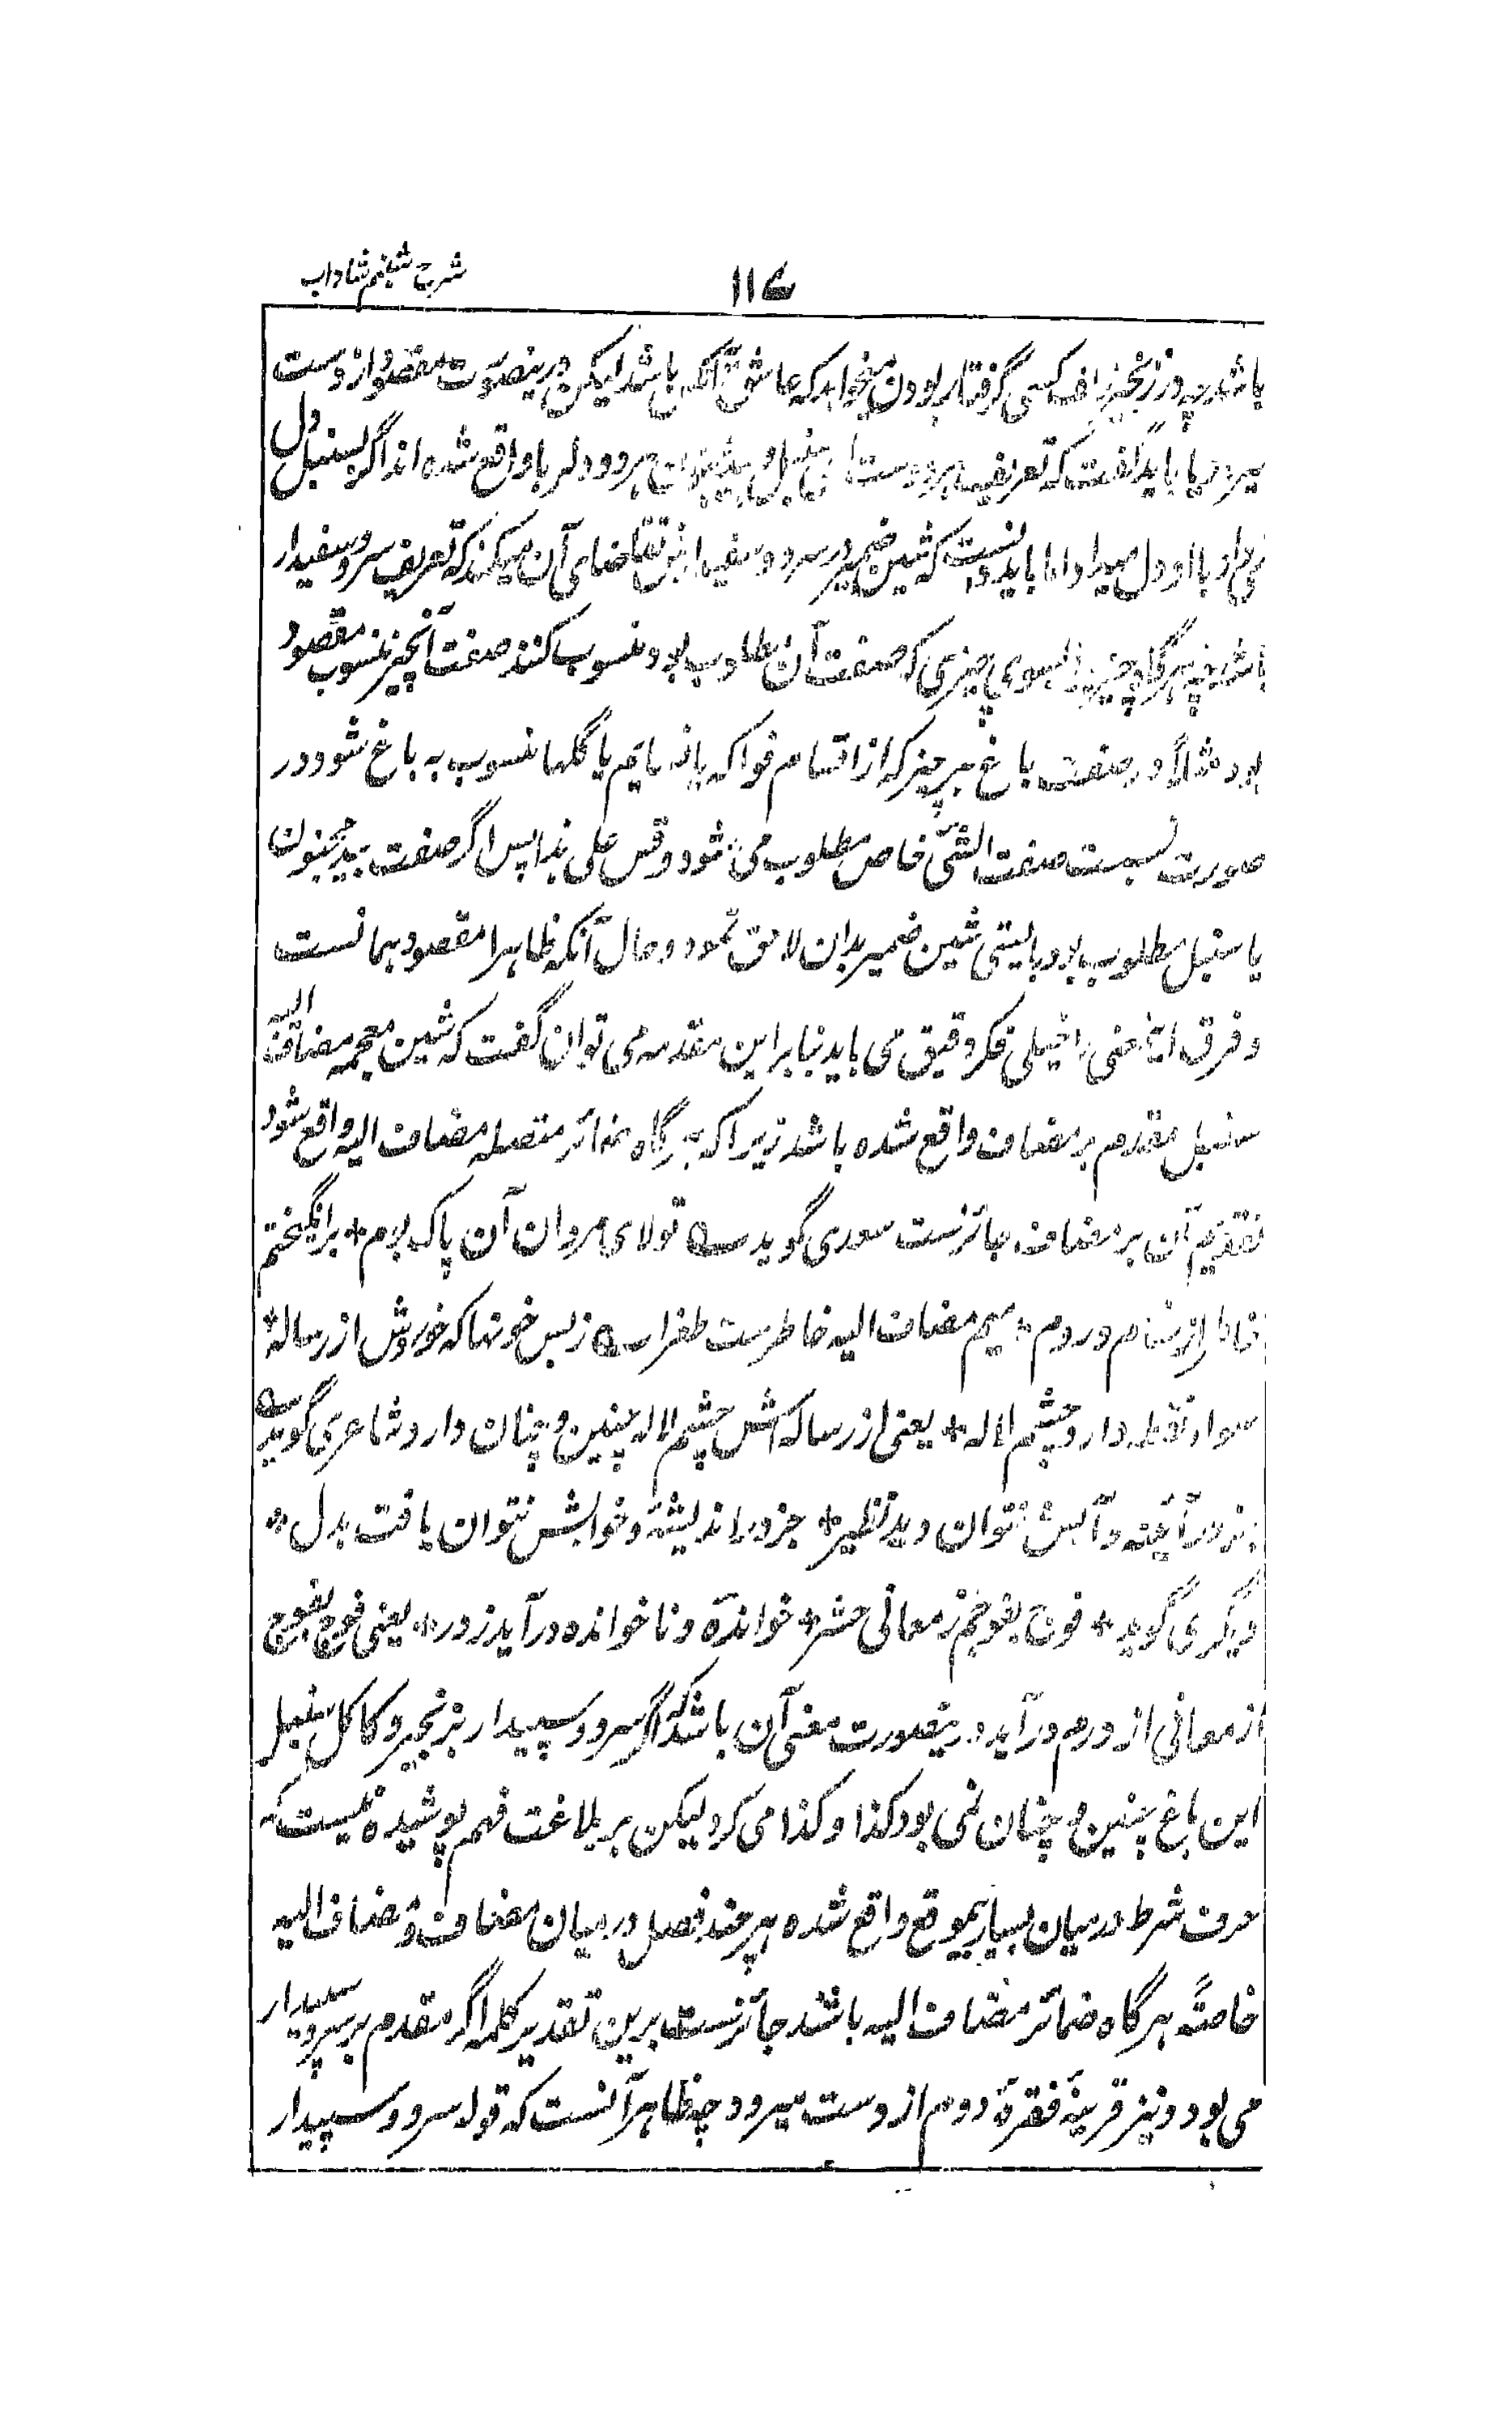 ۱۱۷
شرح شبنم شاداب
باشد چه در زنجیر زلف کسی گرفتار بودن میخواهد که عاشق آنکس باشد لیکن درینصورت مقصود از دست
میرود یا باید گفت که تعریف واقع شده اند گو سنبل دل
او دل اما باید دانست که شین ضمیر در سرو و سفیدارش تقاضای آن میکند که تعریف سرو سفیدار
باشد چه هرگاه چیزی بسوی چیزی که صفت آن مطلوب بود منسوب کنند صفت آنچیز منسوب مقصود
بود مثلاً در صفت باغ هر چیز که از اقسام فواکه یا گلها منسوب به باغ شود در
صورت نسبت صفت الشیٔ خاص مطلوب می شود و قس علی هذا پس اگر صفت بید مجنون
یا سنبل مطلوب بود بایستی شین ضمیر بدان لاحق نمود و حال آنکه ظاهرا مقصود همانست
و فرق این معنی را خیلی فکر دقیق می باید بنابر این مقدمه می توان گفت که شین معجمه مضاف الیه
سنبل مقدم بر مضاف واقع شده باشد زیرا که هرگاه ضمائر متصله مضاف الیه واقع شود
تقدیم آن بر مضاف جائزست سعدی گوید ؎ تولای مردان آن پاک بوم * برانگیختم
خاطر از شام و روم * میم مضاف الیه خاطرست طغرا ؎ ز بس خونها که خوردش از رساله *
سواد نقطه دارد چشم لاله * یعنی از رساله اش چشم لاله چنین و چنان دارد شاعری گوید ؎
جز در آئینه و آبش نتوان دید نظیر * جز در اندیشه و خوابش نتوان یافت بدل *
دیگری گوید * فوج بفوجم ز معانی حشر * خوانده و ناخوانده در آید ز در * یعنی فوج بفوج
از معانی از درم در آید درینصورت معنی آن باشد که اگر سرو و سپیدار بزنجیر و کاکل سنبل
این باغ چنین و چنان نمی بود کذا و کذا می کرد لیکن بر بلاغت فهم پوشیده نیست که
حرف شرط درمیان بسیار بیموقع واقع شده هر چند فصل در میان مضاف و مضاف الیه
خاصةً هرگاه ضمائر مضاف الیه باشند جائزست برین تقدیر کلمه اگر مقدم بر سرو سپیدار
می بود و نیز قرینهٔ فقرهٔ دوم از دست میرود چه ظاهر آنست که قوله سرو و سپیدار